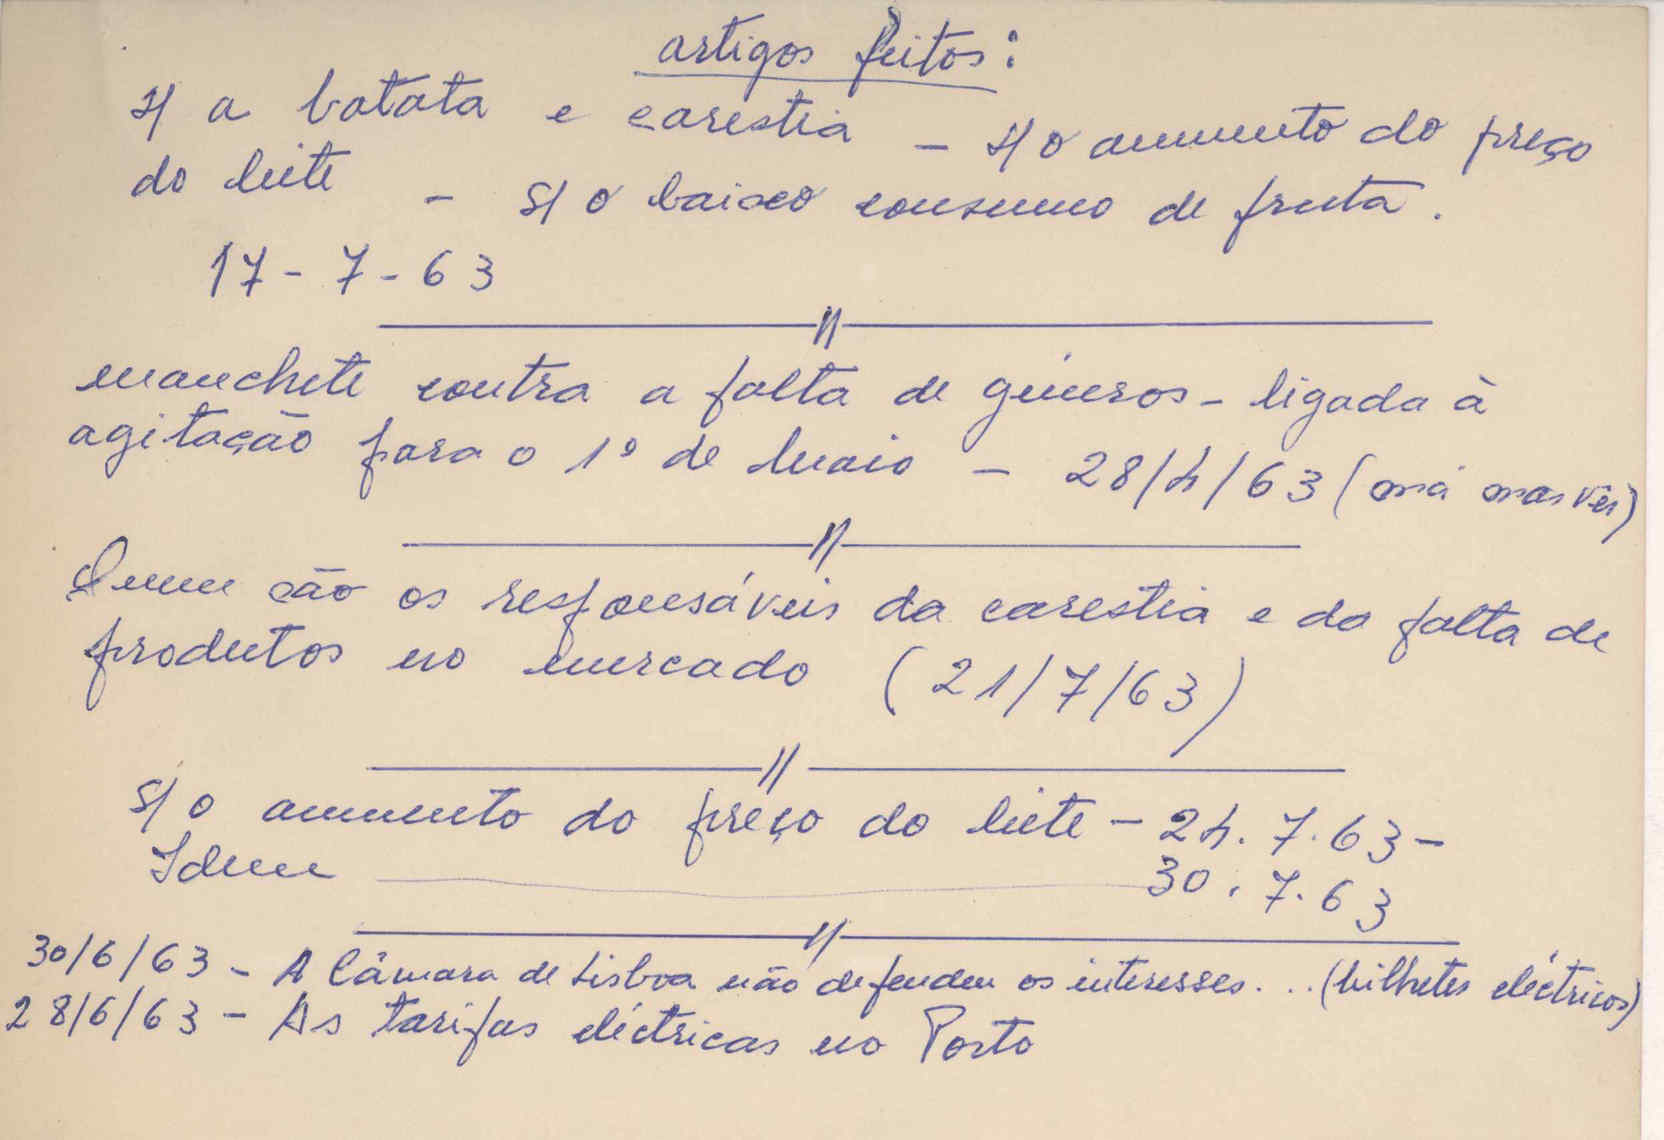 artigos feitos:
s/ a batata e carestia - s/ o aumento do preço
do leite - s/ o baixo consumo de fruta.
17-7-63
//
manchete contra a falta de géneros - ligada à
agitação para o 1º de Maio - 28/4/63 (má mas ver)
//
Quem são os responsáveis da carestia e da falta de
produtos no mercado (21/7/63)
//
s/ o aumento do preço do leite - 24.7.63-
Idem 30.7.63
//
30/6/63 - A Câmara de Lisboa não defendeu os interesses... (bilhetes eléctricos)
28/6/63 - As tarifas eléctricas no Porto